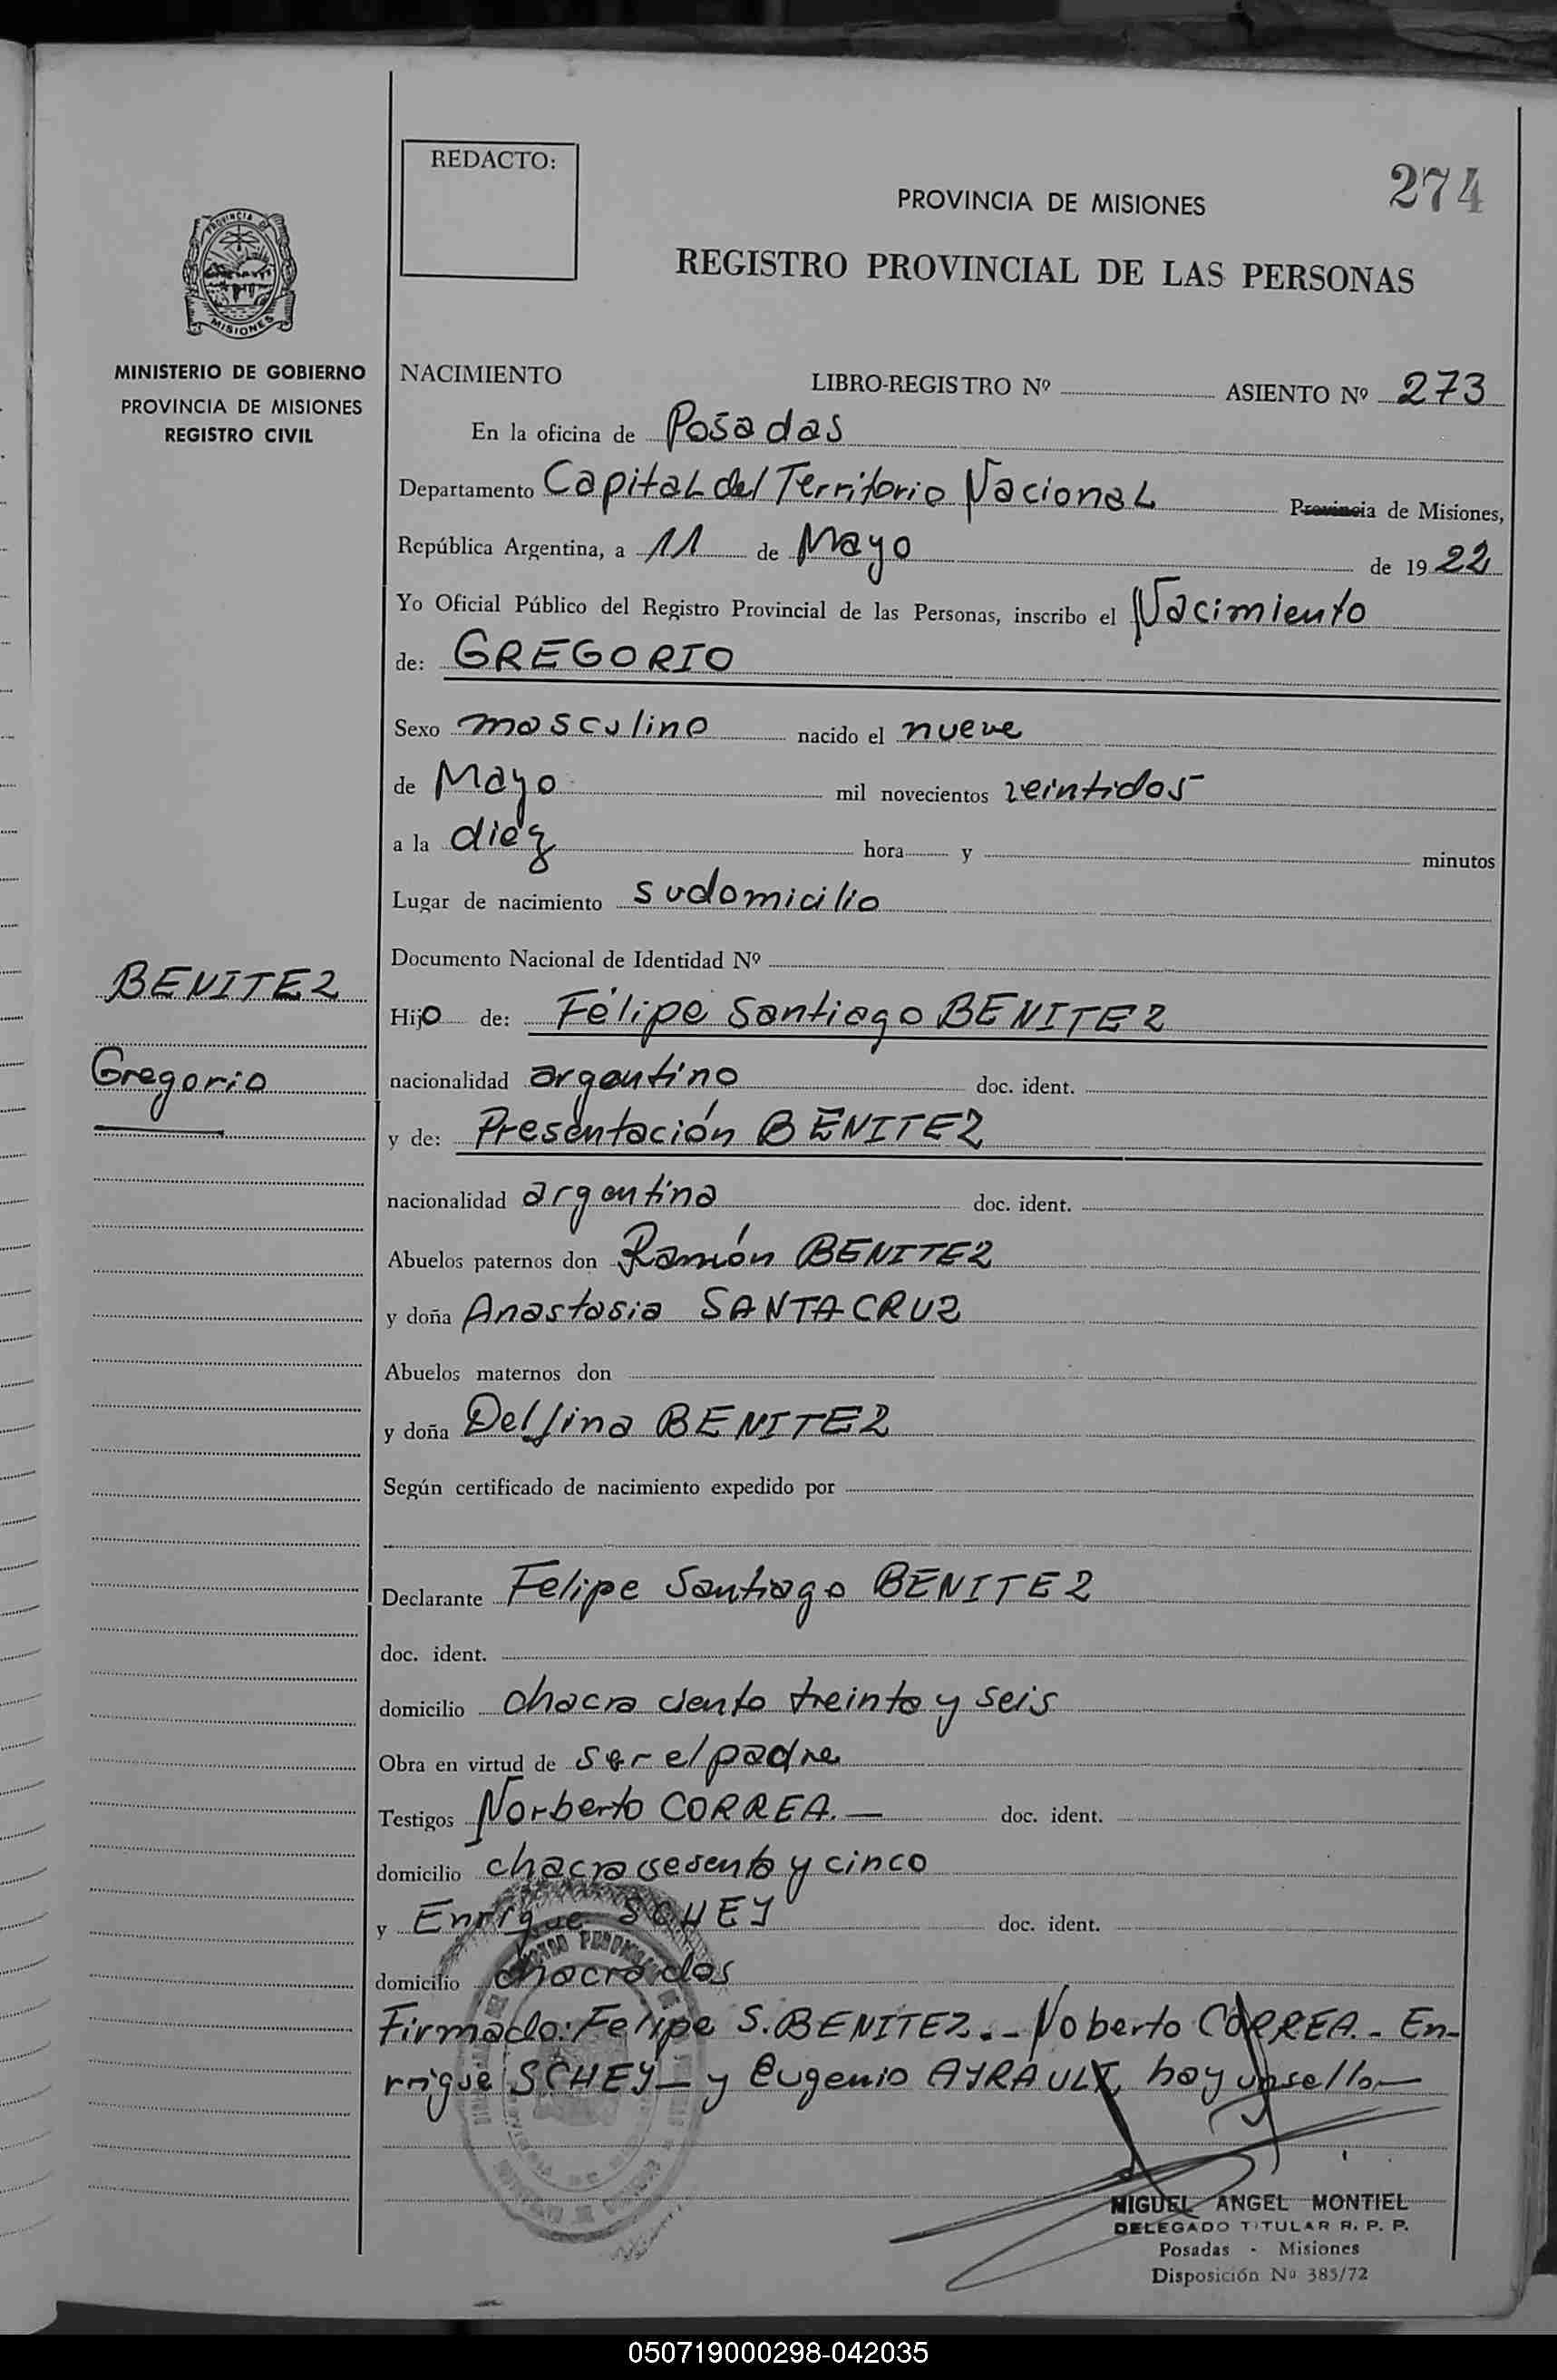 REDACTO:
274
PROVINCIA DE MISIONES
REGISTRO PROVINCIAL DE LAS PERSONAS
PROVINCIA DE
MISIONES
MINISTERIO DE GOBIERNO
PROVINCIA DE MISIONES
REGISTRO CIVIL
NACIMIENTO LIBRO-REGISTRO Nº ASIENTO Nº 273
En la oficina de Posadas
Departamento Capital del Territorio Nacional Provincia de Misiones,
República Argentina, a 11 de Mayo de 1922
Yo Oficial Público del Registro Provincial de las Personas, inscribo el Nacimiento
de: GREGORIO
Sexo masculino nacido el nueve
de Mayo mil novecientos veintidos
a la diez hora y minutos
Lugar de nacimiento su domicilio
Documento Nacional de Identidad Nº
BENITEZ
Gregorio
Hijo de: Felipe Santiago BENITEZ
nacionalidad argentino doc. ident.
y de: Presentación BENITEZ
nacionalidad argentina doc. ident.
Abuelos paternos don Ramón BENITEZ
y doña Anastasia SANTACRUZ
Abuelos maternos don
y doña Delfina BENITEZ
Según certificado de nacimiento expedido por
Declarante Felipe Santiago BENITEZ
doc. ident.
domicilio chacra ciento treinta y seis
Obra en virtud de ser el padre
Testigos Norberto CORREA.— doc. ident.
domicilio chacra sesenta y cinco
y Enrique SCHEY doc. ident.
domicilio chacra dos
Firmado: Felipe S. BENITEZ.- Noberto CORREA.- En-
rrique SCHEY — y Eugenio AYRAULT, hay un sello—
MIGUEL ANGEL MONTIEL
DELEGADO TITULAR R. P. P.
Posadas - Misiones
Disposición Nº 385/72
050719000298-042035